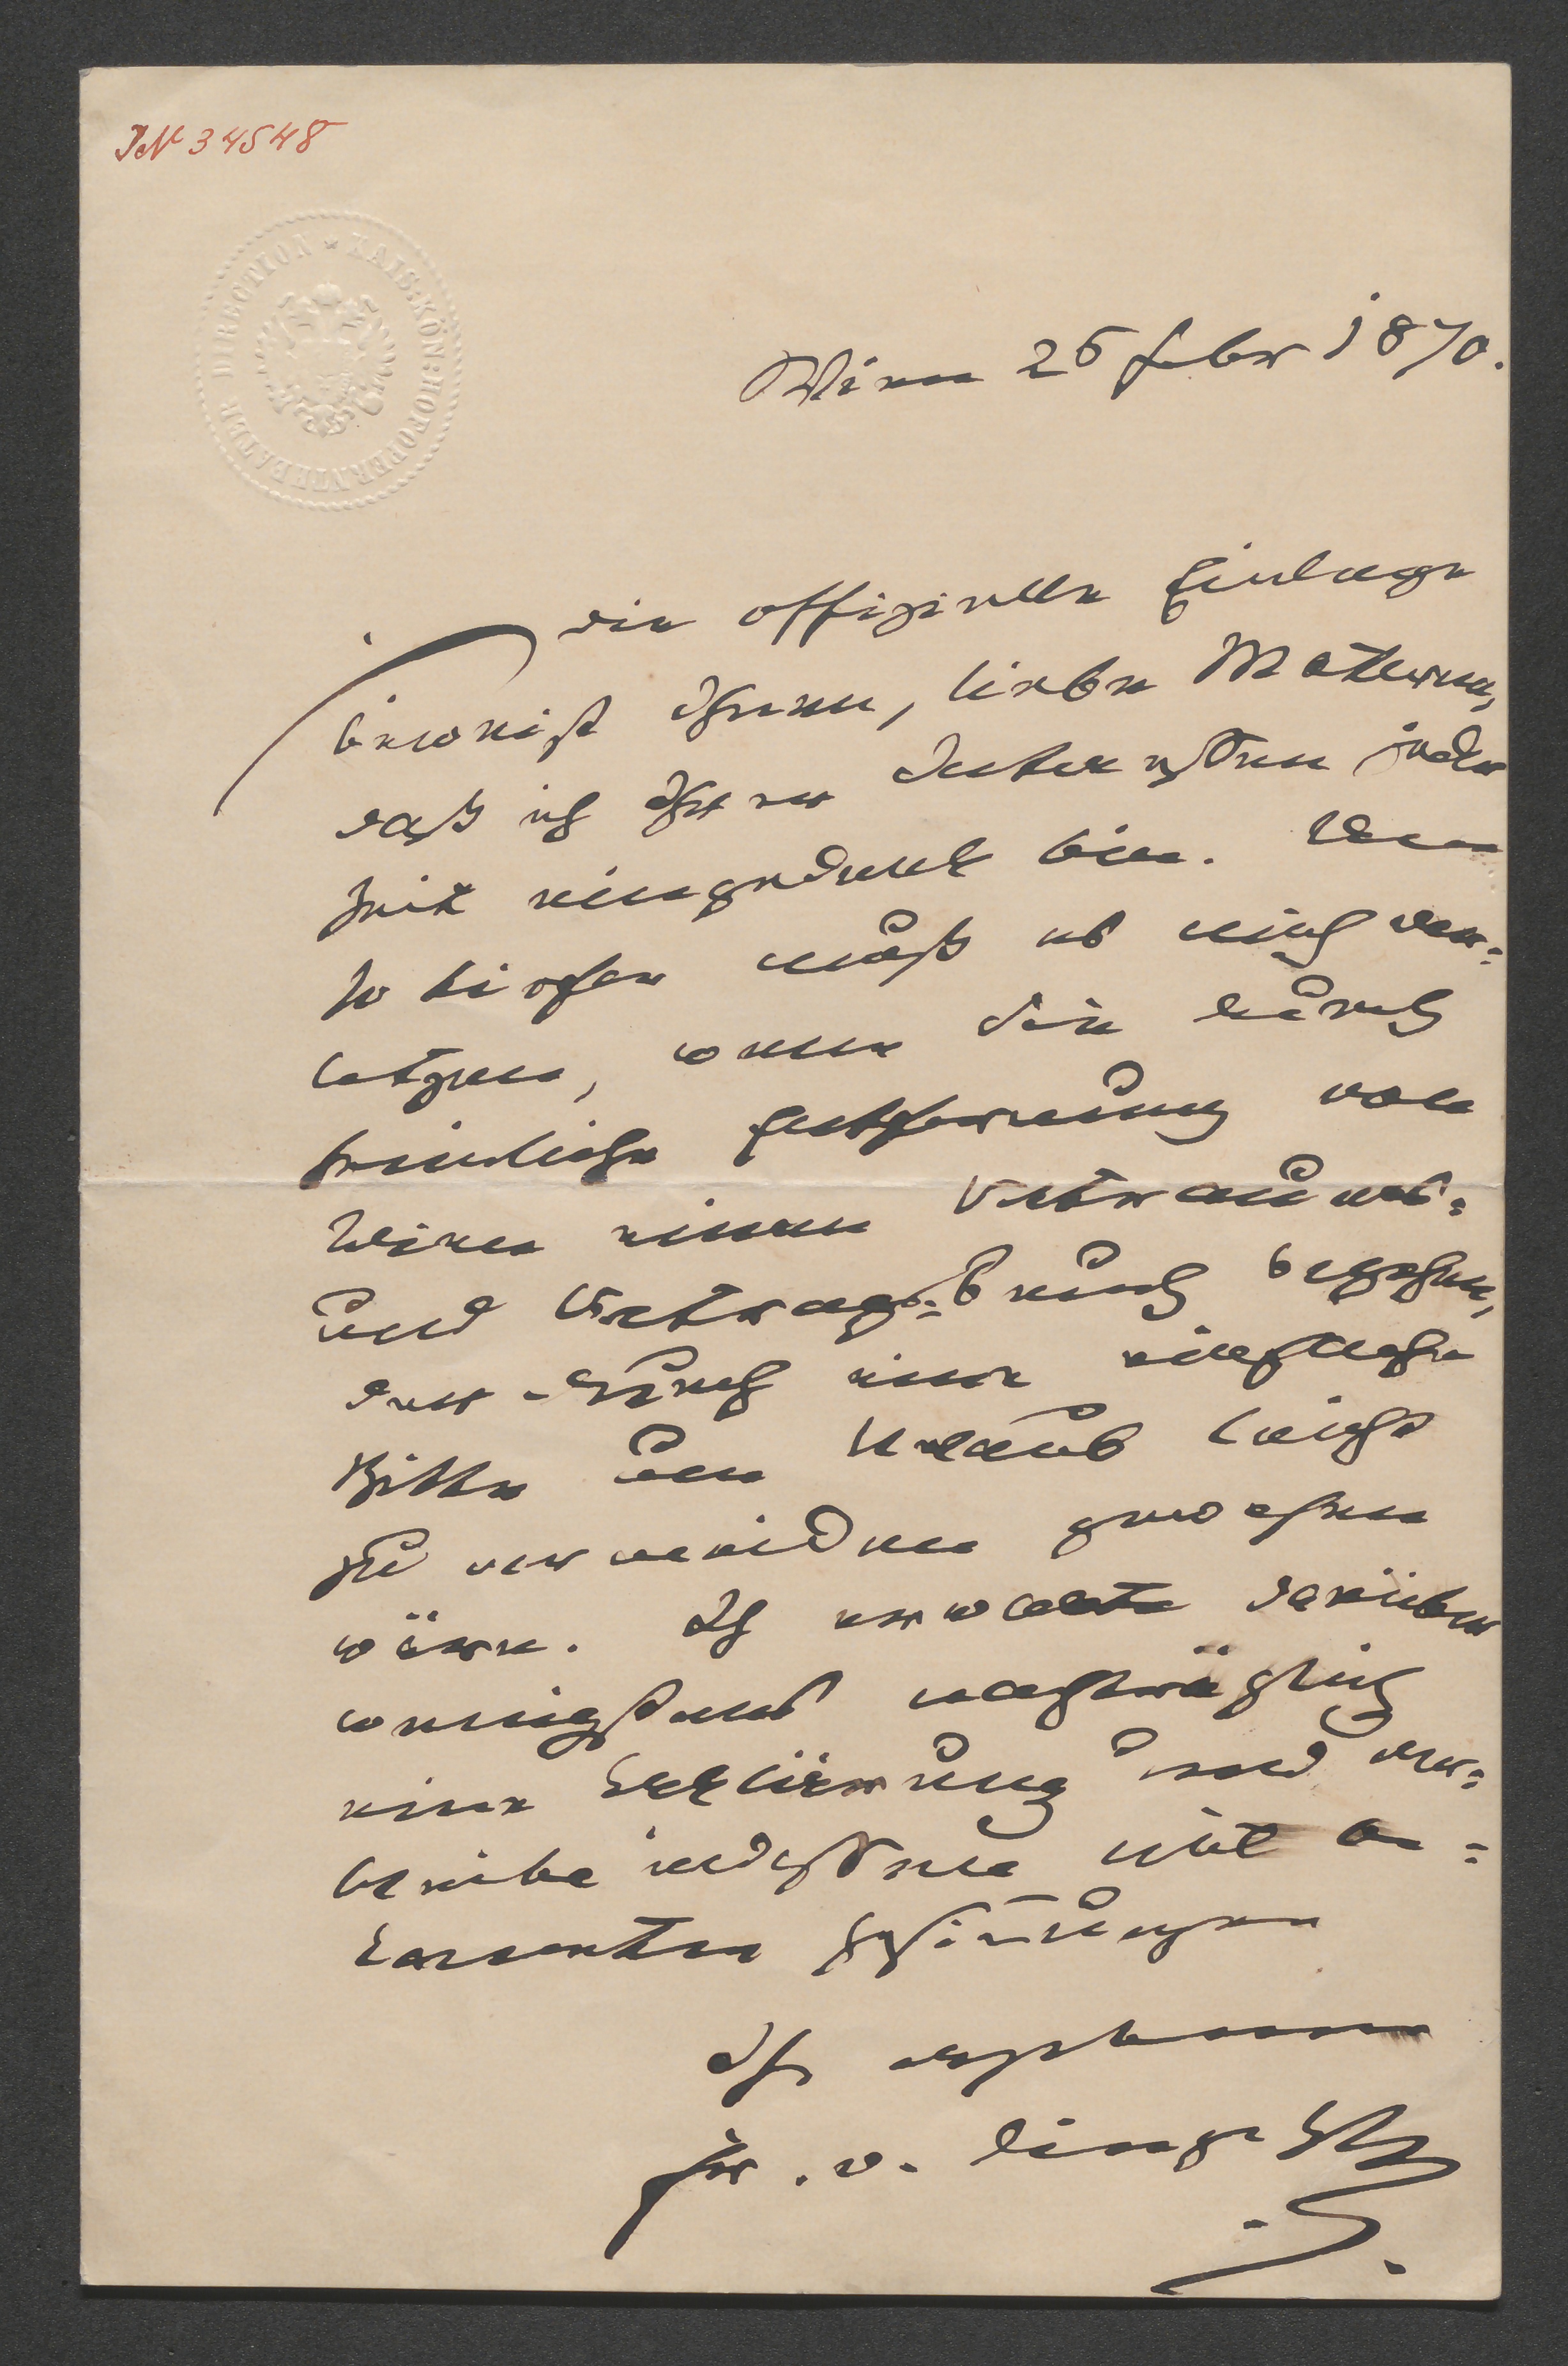 JN 34548
KAIS: KÖN: HOFOPERNTHEATER DIRECTION
Wien 26 febr 1870.
die offizielle Einlage
beweist Ihnen, liebe Materna,
daß ich Ihrer Interessen jeder
Zeit eingedenk bin. Um
so tiefer muß es mich ver-
letzen, wenn Sie durch
heimliche Entfernung von
Wien einen Vertrauens-
und Vertrags-bruch begehen,
der durch eine einfache
Bitte um Urlaub leicht
zu vermeiden gewesen
wäre. Ich erwarte darüber
wenigstens nachträglich
eine Erklärung und ver-
bleibe indessen mit be-
kannten Gesinnungen
Ihr ergebener
fr. v. Dingelst